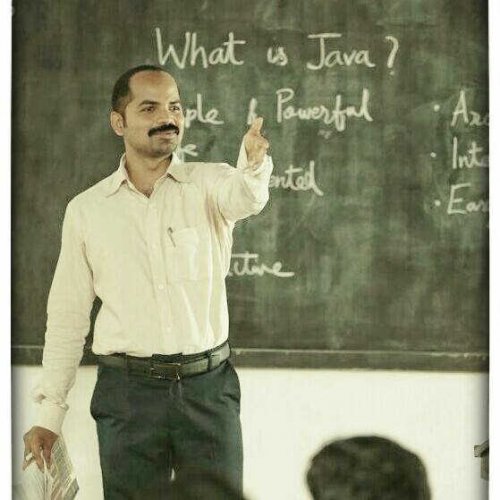 What is Java?
ple & Powerful
ented
ctive
· Arc
· Inte
· Eas